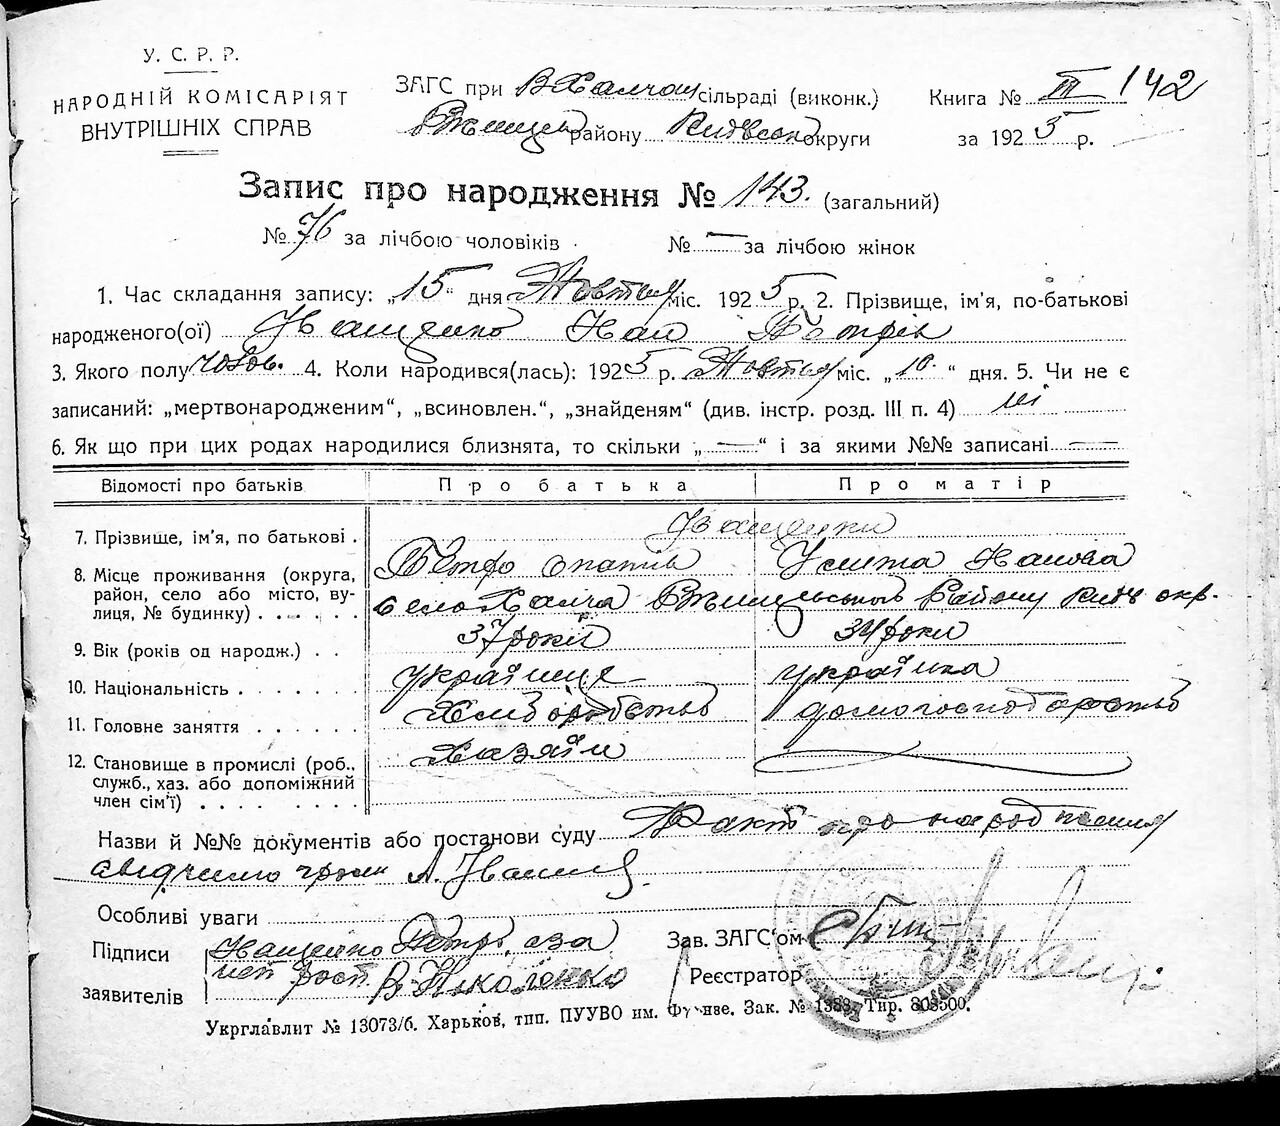 У. С. Р. Р.
НАРОДНІЙ КОМІСАРІЯТ
ВНУТРІШНІХ СПРАВ
ЗАГС при В Халчан сільраді (виконк.)
Ржищев району Київськ округи
Книга № III 142
за 1925 р.
Запис про народження № 143. (загальний)
№ 76 за лічбою чоловіків № — за лічбою жінок
1. Час складання запису: „15“ дня Жовтня міс. 1925 р. 2. Прізвище, ім'я, по-батькові
народженого(ої) Іващенко Іван Петрів
3. Якого полу чолов. 4. Коли народився(лась): 1925 р. Жовтня міс. „10.“ дня. 5. Чи не є
записаний: „мертвонародженим“, „всиновлен.“, „знайденям“ (див. інстр. розд. III п. 4) ні
6. Як що при цих родах народилися близнята, то скільки „—“ і за якими №№ записані —
Відомості про батьків Про батька Про матір
7. Прізвище, ім'я, по батькові . Іващенки
Петро Уліта Іванова
8. Місце проживання (округа, район, село або місто, вулиця, № будинку) . . . . . . село Халча Ржищівського Району Київ окр.
9. Вік (років од народж.) . . 37 років 34 роки
10. Національність . . . . . . . українце українка
11. Головне заняття . . . . . . Хліборобство домогосподарство
12. Становище в промислі (роб., служб., хаз. або допоміжний член сім'ї) . . . . . . . . Хазяїн
Назви й №№ документів або постанови суду Факт про народження
свідчимо гром А.
Особливі уваги
Підписи Іващенко Петро, а за
заявителів неп росп. В. Ніколенко
Зав. ЗАГС'ом
Реєстратор
Укрглавлит № 13073/б. Харьков, тип. ПУУВО им. Фрунзе. Зак. № 1388. Тир. 803500.